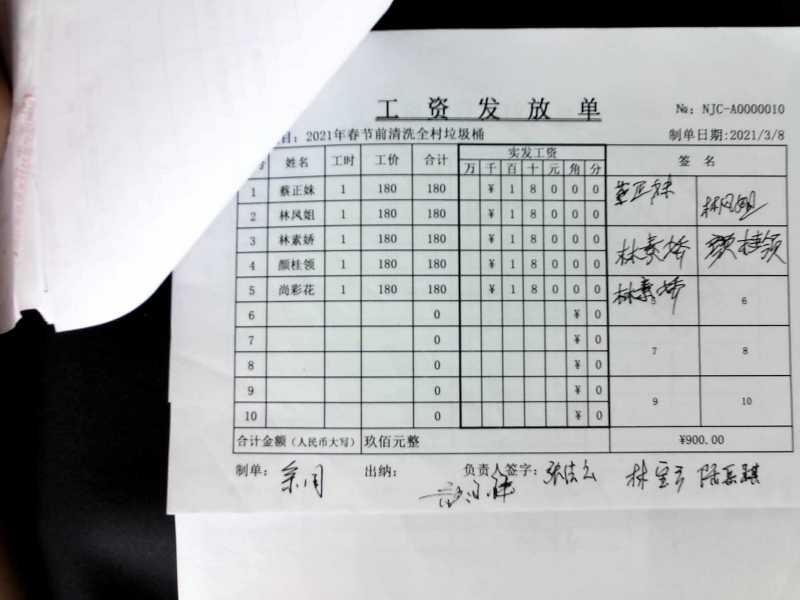 工资发放单
№: NJC-A0000010
目: 2021年春节前清洗全村垃圾桶 制单日期:2021/3/8
号 姓名 工时 工价 合计 实发工资 签名
万 千 百 十 元 角 分
1 蔡正妹 1 180 180 ¥ 1 8 0 0 0 蔡正妹
2 林凤姐 1 180 180 ¥ 1 8 0 0 0 林凤姐
3 林素娇 1 180 180 ¥ 1 8 0 0 0 林素娇
4 颜桂领 1 180 180 ¥ 1 8 0 0 0 颜桂领
5 尚彩花 1 180 180 ¥ 1 8 0 0 0 林素娇 5 6
6 0 ¥ 0
7 0 ¥ 0 7 8
8 0 ¥ 0
9 0 ¥ 0 9 10
10 0 ¥ 0
合计金额(人民币大写) 玖佰元整 ¥900.00
制单: 出纳: 负责人签字: